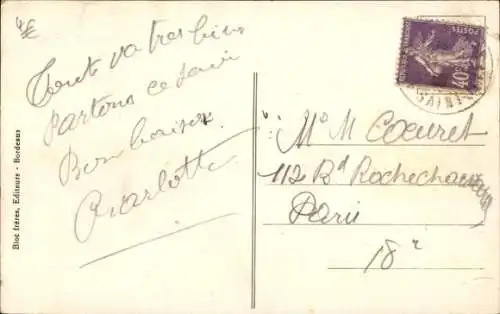 4€
Tout va tres bien
Partons ce soir
Bons baisers
Charlotte
Bloc frères, Editeurs - Bordeaux
POSTES
40c
SAINT
Mr M Coeuret
112 Bd Rochechouart
Paris
18e